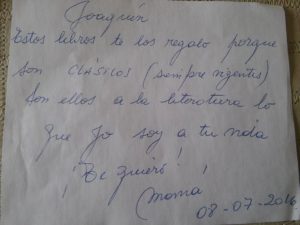 Joaquín
Estos libros te los regalo porque
son CLÁSICOS (siempre vigentes)
Son ellos a la literatura lo
que yo soy a tu vida
¡Te quiero!
Mamá
08-07-2016